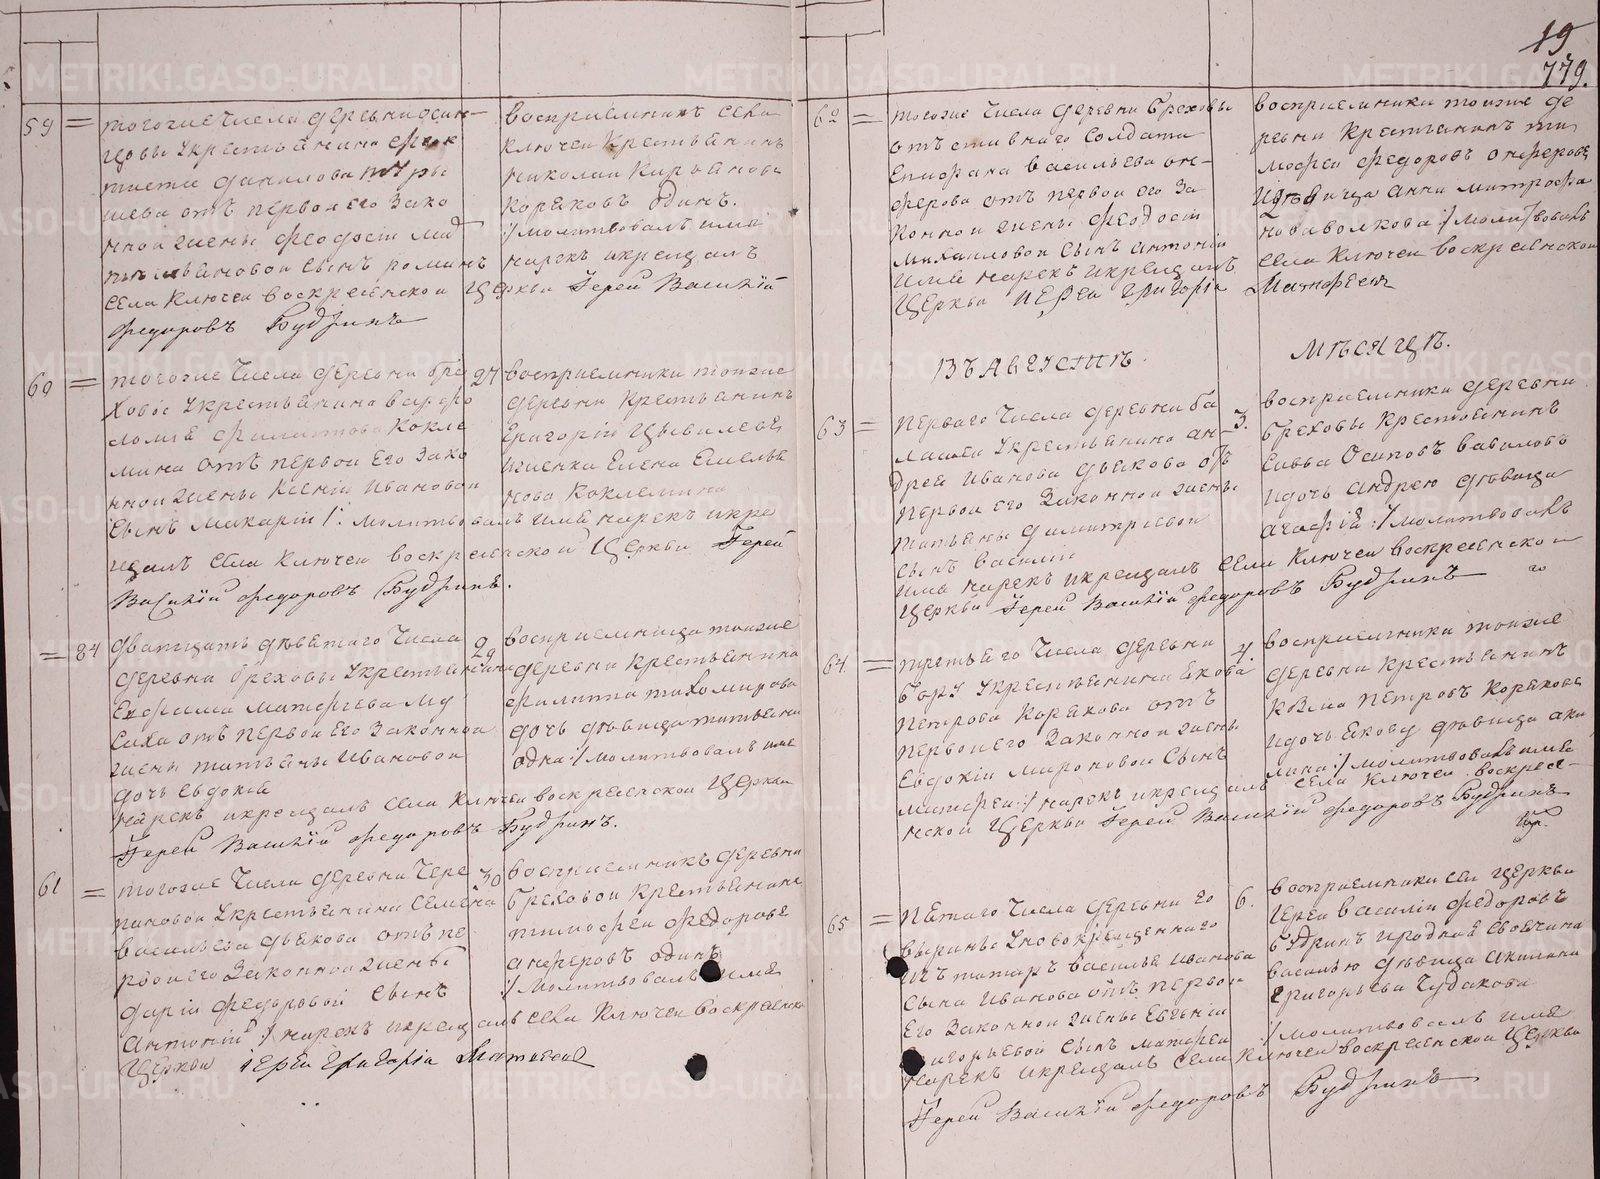 59 = тогоже числа деревни
цовы укрестьянина
данилова
шева отъ первой его зако
нной жены Феодосiи
ивановой сынъ романъ
села Ключей воскресенской Церкви Iерей Василiй
Федоровъ Будринъ
восприемникъ села
ключей крестьянинъ
николай Кирьяновъ
коряковъ одинъ.
:/ молитвовалъ имя
нарекъ икрещалъ
60 = тогоже числа деревни бре 27
ховы укрестьянина варфо
ломея филиппова Кокле
мина отъ первой его зако
нной жены Ксенiи Ивановой
сынъ макарiй /: молитвовалъ имя нарекъ икре
щалъ села ключей воскресенской Церкви Iерей
Василiй Федоровъ Будринъ.
восприемники тоиже
деревни крестьянинъ
григорiй
иженка Елена Емелья
нова Коклемина
= 84 дватцать девятаго числа 29
деревни бреховы укрестьянина
Ефима матфеева му
сиха отъ первой его законной
жены татьяны Ивановой
дочь евдокия
нарекъ икрещалъ села ключей воскресенской Церкви
Iерей Василiй Федоровъ Будринъ.
восприемница тоиже
деревни крестьянина
филиппа тихомирова
дочь девица татьяна
одна :/ молитвовалъ имя
61 = тогоже числа деревни Чере 30
пановой укрестьянина семена
васильева дьякова отъ пе
рвой его законной жены
дарiи федоровой сынъ
Антонiй :/ нарекъ икрещалъ села ключей воскресенской
Церкви iерей григорiй Матвеев
восприемникъ деревни
бреховой крестьянинъ
тимофей федоровъ
анферовъ одинъ
:/ молитвовалъ имя
19
779.
62 = тогоже числа деревни бреховы
отъставнаго солдата
Епифана васильева ан-
ферова отъ первой его за
конной жены феодосiи
михайловой сынъ антонiй
имя нарекъ икрещалъ села ключей воскресенской
Церкви iерей григорiй Матфеев
восприемники тоиже де
ревни крестьянинъ ти
мофей федоровъ анферовъ
идевица анна митрофа
нова волкова :/ молитвовалъ
Въ Августѣ Мѣсяцѣ.
63 = перваго числа деревни ба 3.
лашеи укрестьянина ан-
дрея Иванова дьякова отъ
первой его законной жены
татьяны димитрiевой
сынъ василий
имя нарекъ икрещалъ села ключей воскресенской
Церкви Iерей Василiй Федоровъ Будринъ
восприемники деревни
бреховы крестьянинъ
савва Осиповъ вавиловъ
идочь андрея девица
агафiя :/ молитвовалъ
64 = третьяго числа деревни 4
бору укрестьянина якова
петрова корякова отъ
первой его законной жены
Евдокiи мироновой сынъ
матфей :/ нарекъ икрещалъ села ключей воскресе-
нской Церкви Iерей Василiй Федоровъ Будринъ
восприемники тоиже
деревни крестьянинъ
козма петровъ коряковъ
идочь якову девица аки
лина :/ молитвовалъ имя
65 = пятаго числа деревни го 6.
вырины уновокрещеннаго
изъ татаръ василья иванова
сына Иванова отъ первой
его законной жены Евгенiи
григорьевой сынъ матфей
нарекъ икрещалъ села ключей воскресенской Церкви
Iерей Василiй Федоровъ Будринъ
восприемники сей церкви
iерей василiй федоровъ
будринъ
василью девица акилина
григорьева Чудакова
:/ молитвовалъ имя